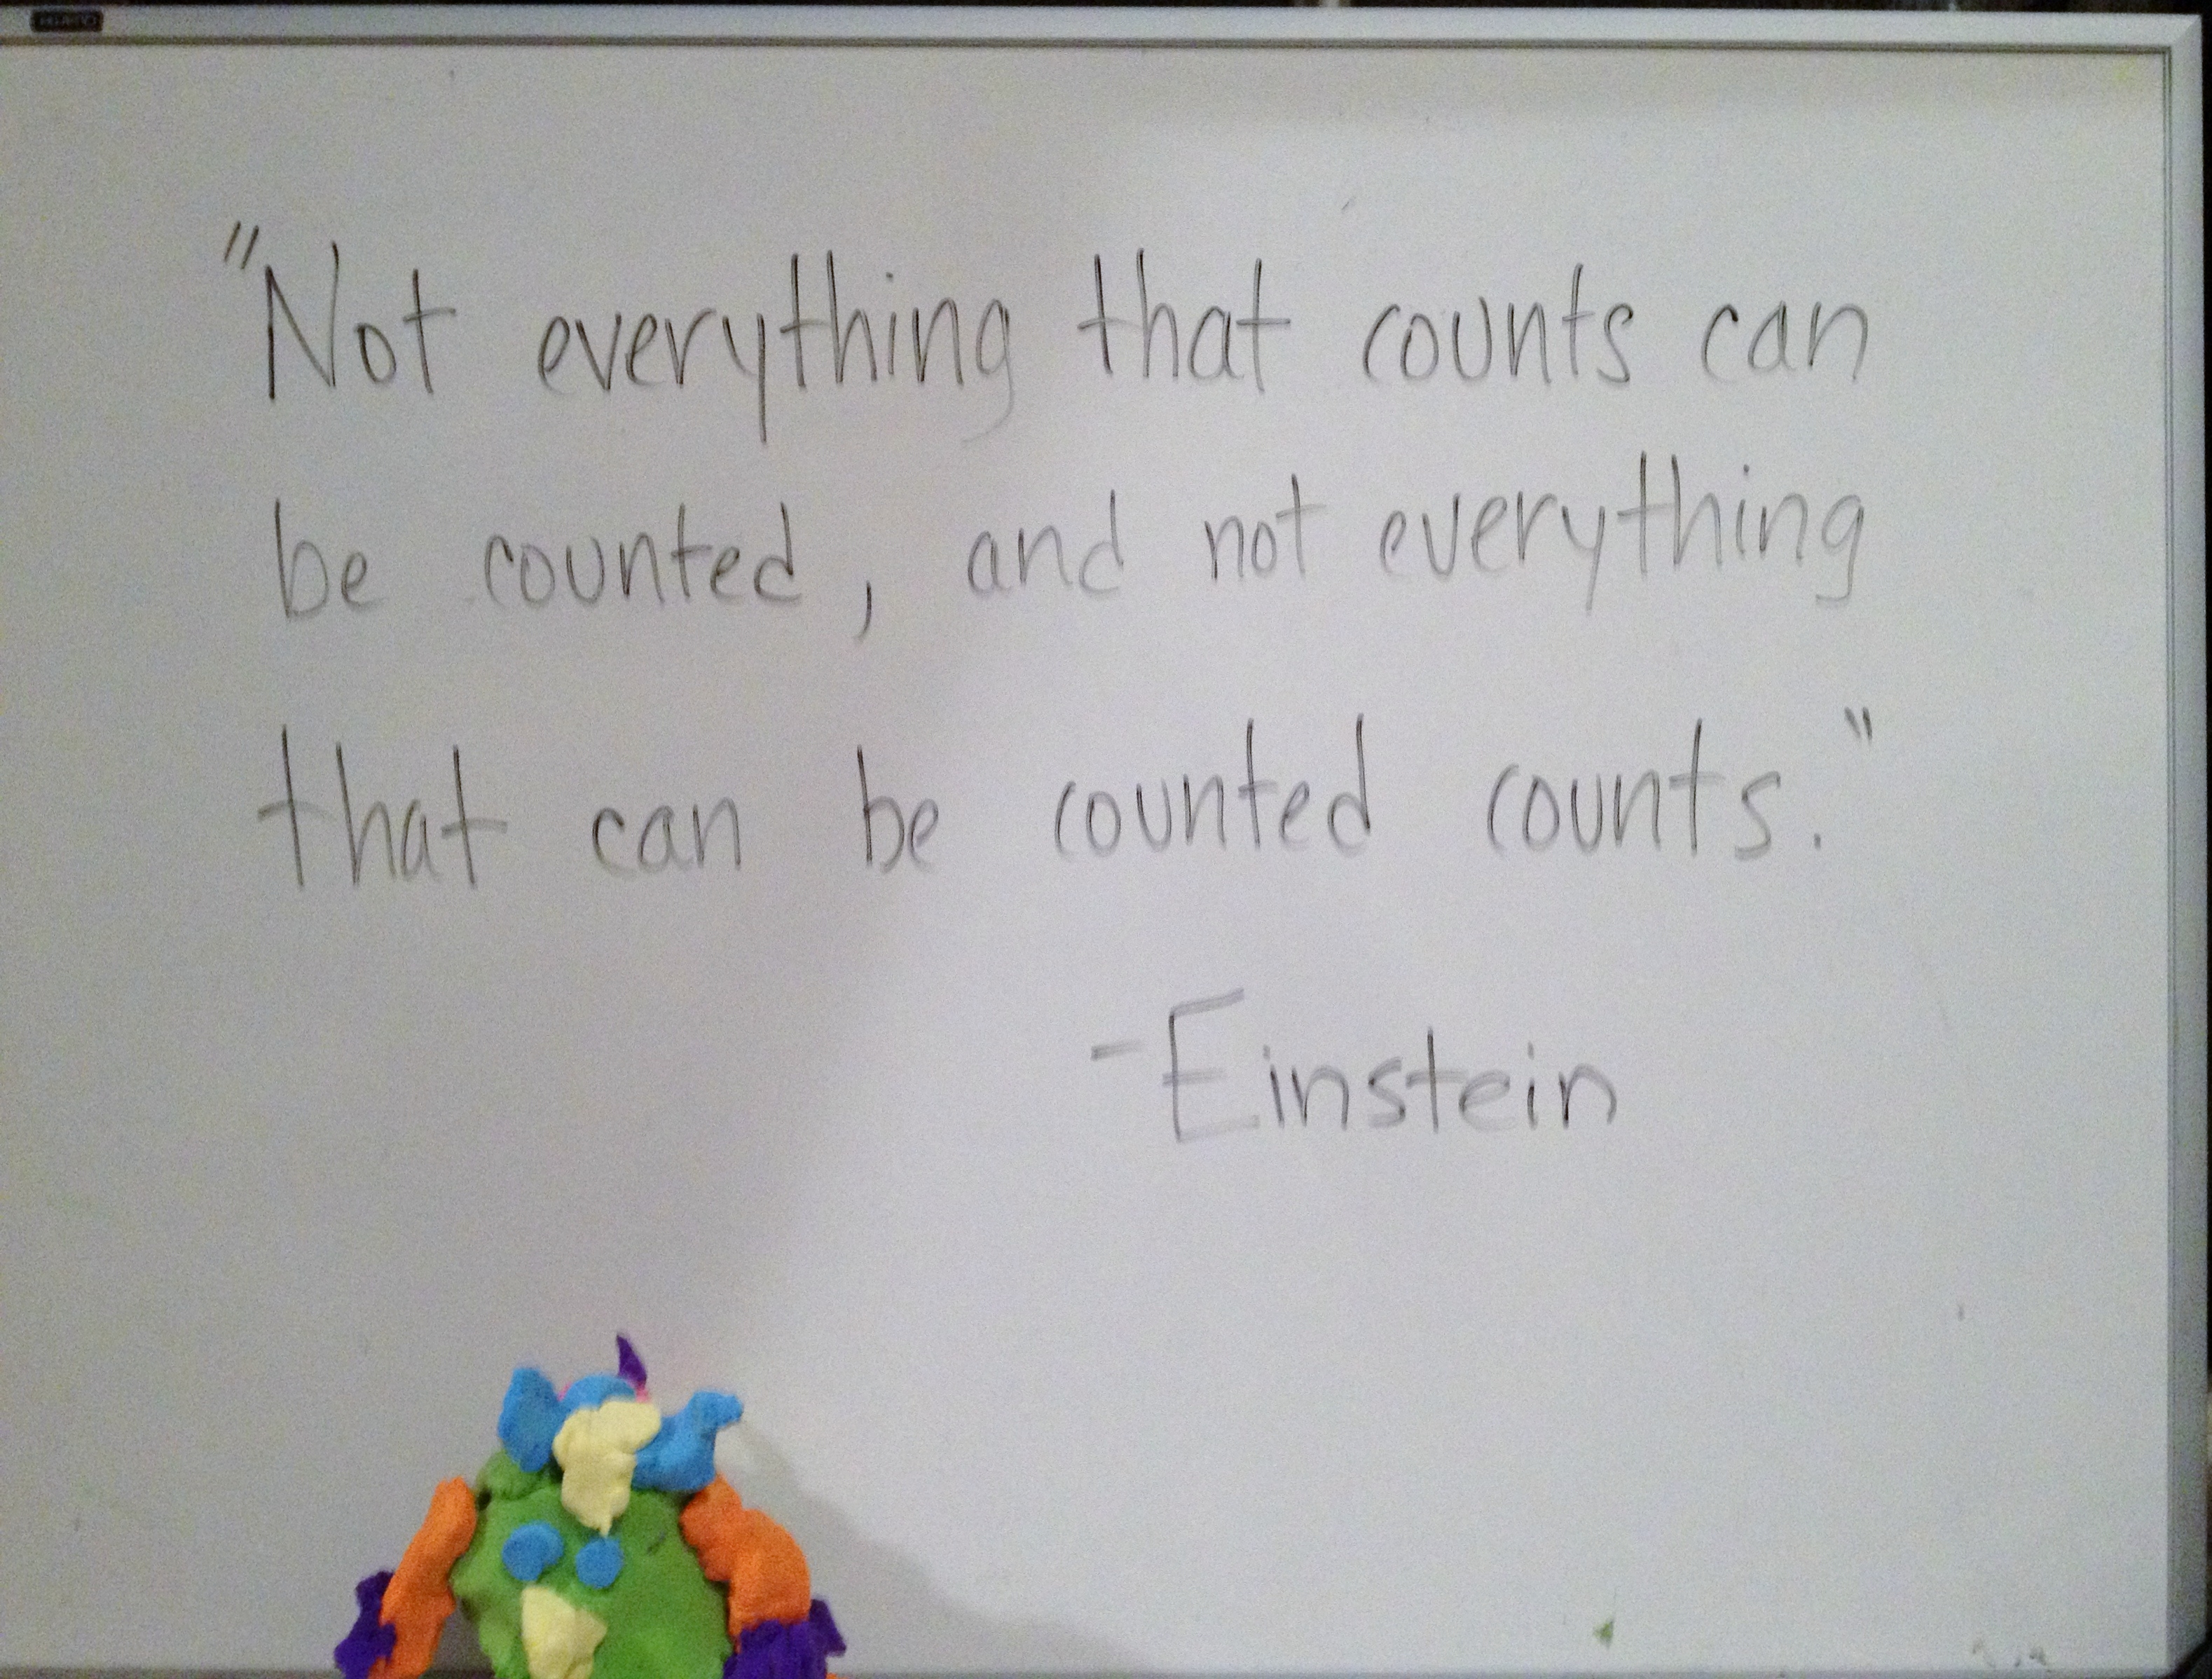 "Not everything that counts can
be counted, and not everything
that can be counted counts."
-Einstein